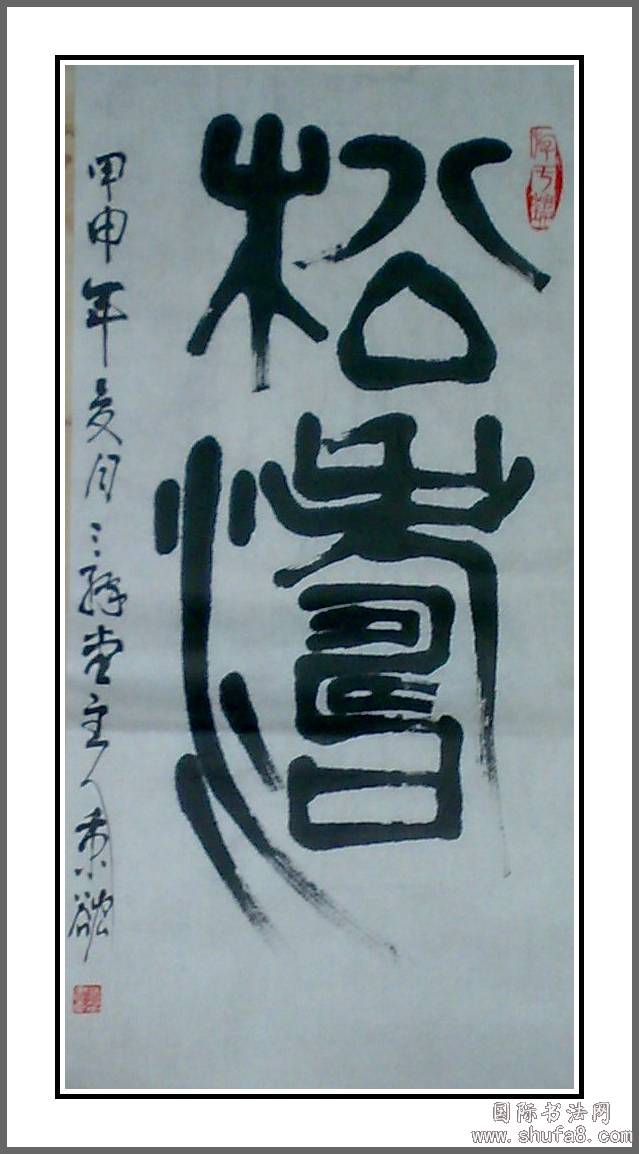 松濤
甲申年夏月三堂主人
国际书法网
www.shufa8.com